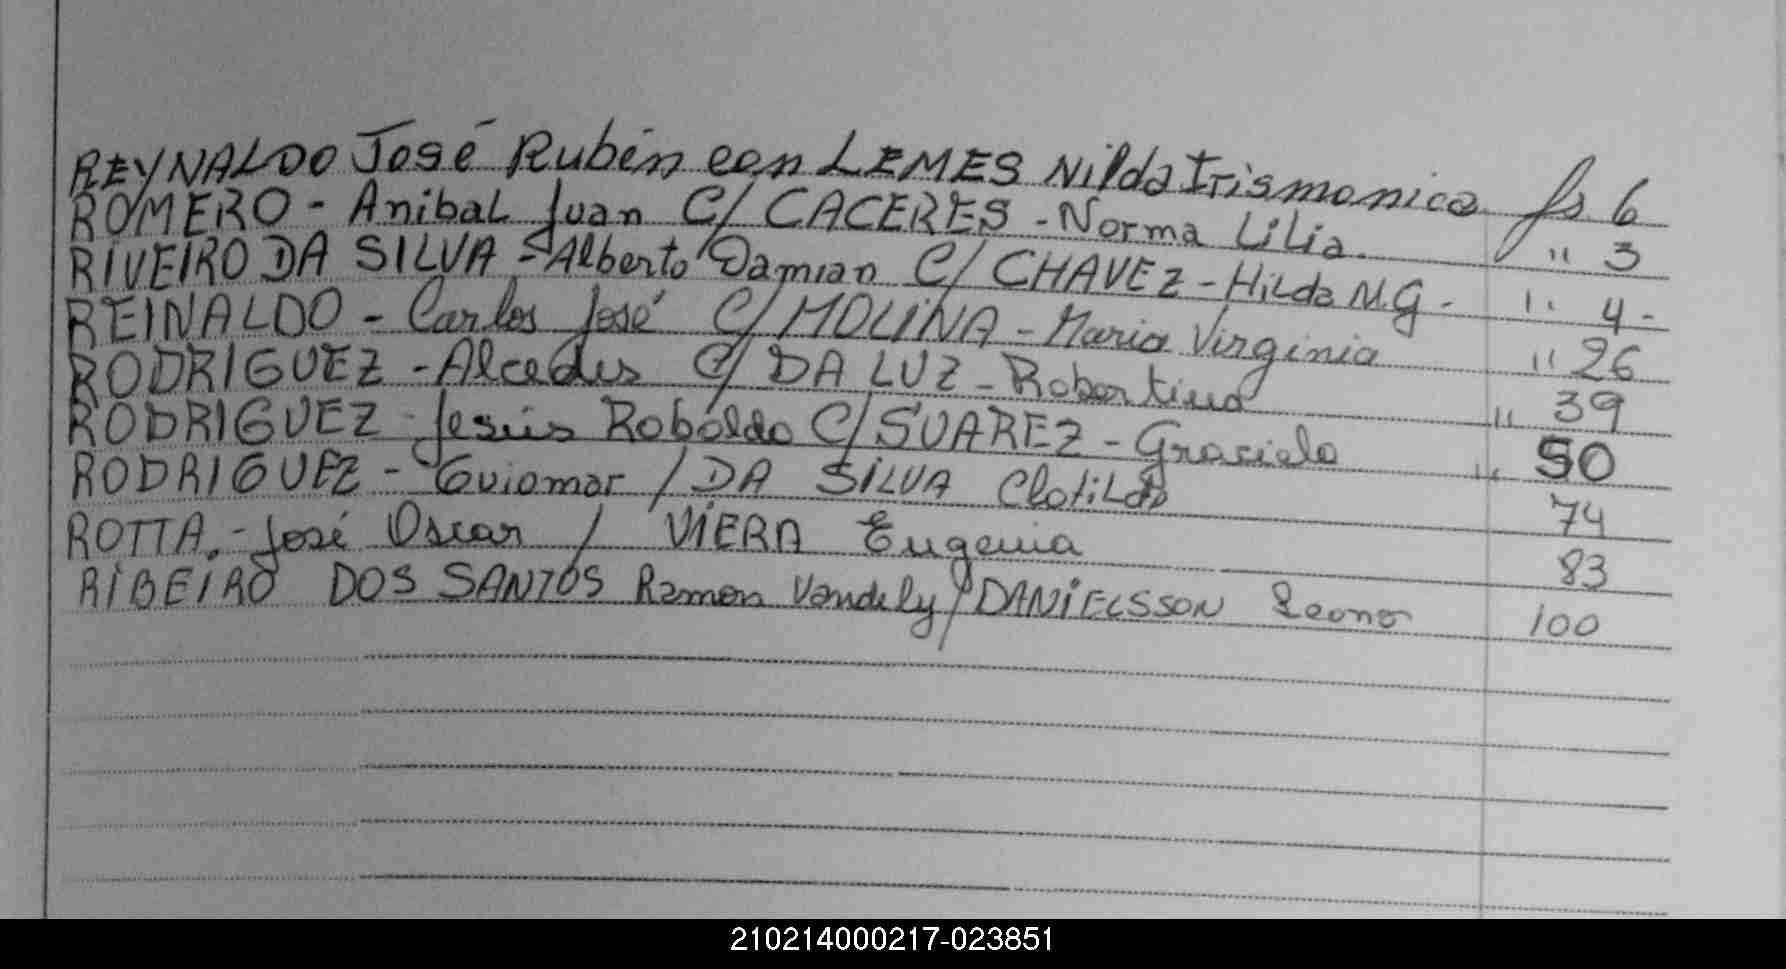 REYNALDO José Rubén con LEMES Nilda Irismonica fs 6
ROMERO - Anibal Juan C/ CACERES - Norma Lilia. " 3
RIVEIRO DA SILVA - Alberto Damian C/ CHAVEZ - Hilda N.G - " 4 -
REINALDO - Carlos José C/ MOLINA - Maria Virginia " 26
RODRIGUEZ - Alcedes C/ DA LUZ - Robertina " 39
RODRIGUEZ - Jesús Robaldo C/ SUAREZ - Graciela " 50
RODRIGUEZ - Guiomar / DA SILVA Clotilde 74
ROTTA. - José Oscar / VIERA Eugenia 83
RIBEIRO DOS SANTOS Ramon Vandely / DANIELSSON Leonor 100
210214000217-023851